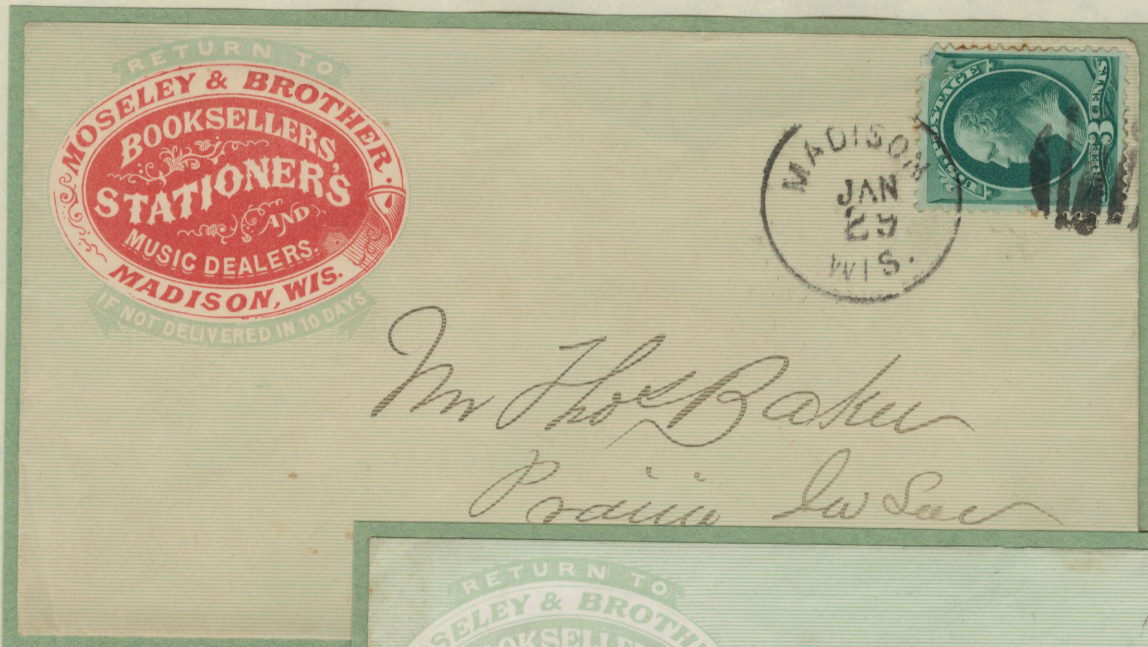 RETURN TO
MOSELEY & BROTHER.
BOOKSELLERS,
STATIONER'S
AND
MUSIC DEALERS.
MADISON, WIS.
IF NOT DELIVERED IN 10 DAYS
MADISON
JAN
29
WIS.
POSTAGE
3 CENTS
Mr Thos Baker
Prairie Du Sac
RETURN TO
SELEY & BROTH
OKSELLE